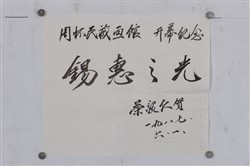 周怀民藏画馆 开幕纪念
锡惠之光
荣毅仁贺
一九八七.